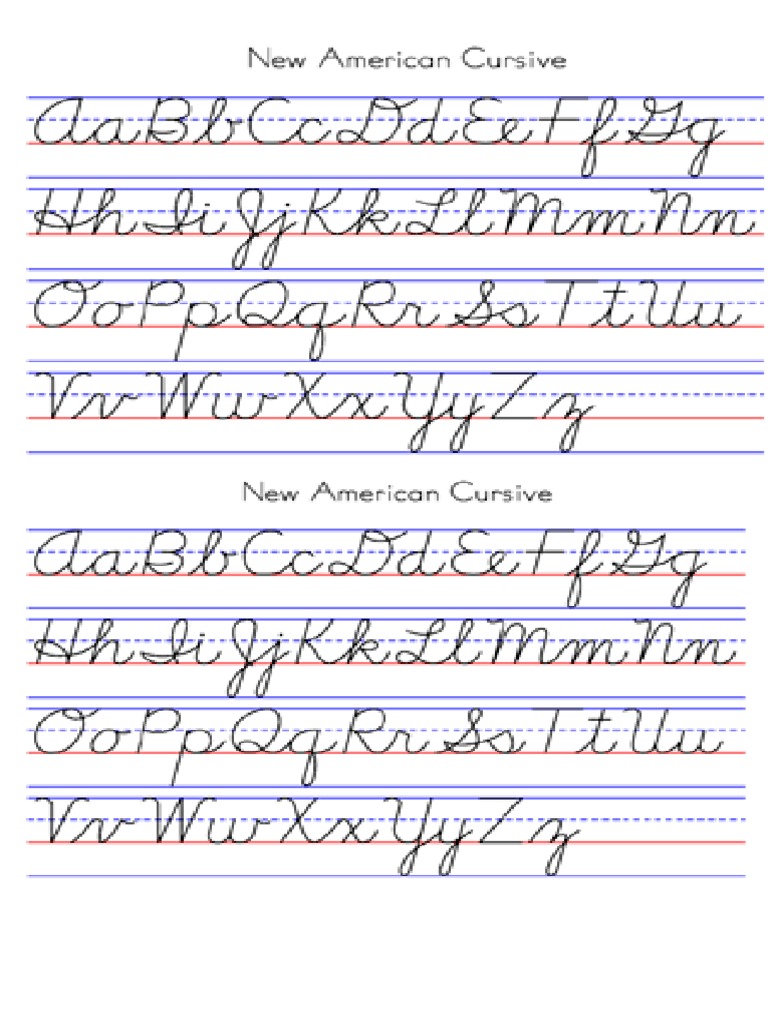 New American Cursive
Aa Bb Cc Dd Ee Ff Gg
Hh Ii Jj Kk Ll Mm Nn
Oo Pp Qq Rr Ss Tt Uu
Vv Ww Xx Yy Zz
New American Cursive
Aa Bb Cc Dd Ee Ff Gg
Hh Ii Jj Kk Ll Mm Nn
Oo Pp Qq Rr Ss Tt Uu
Vv Ww Xx Yy Zz